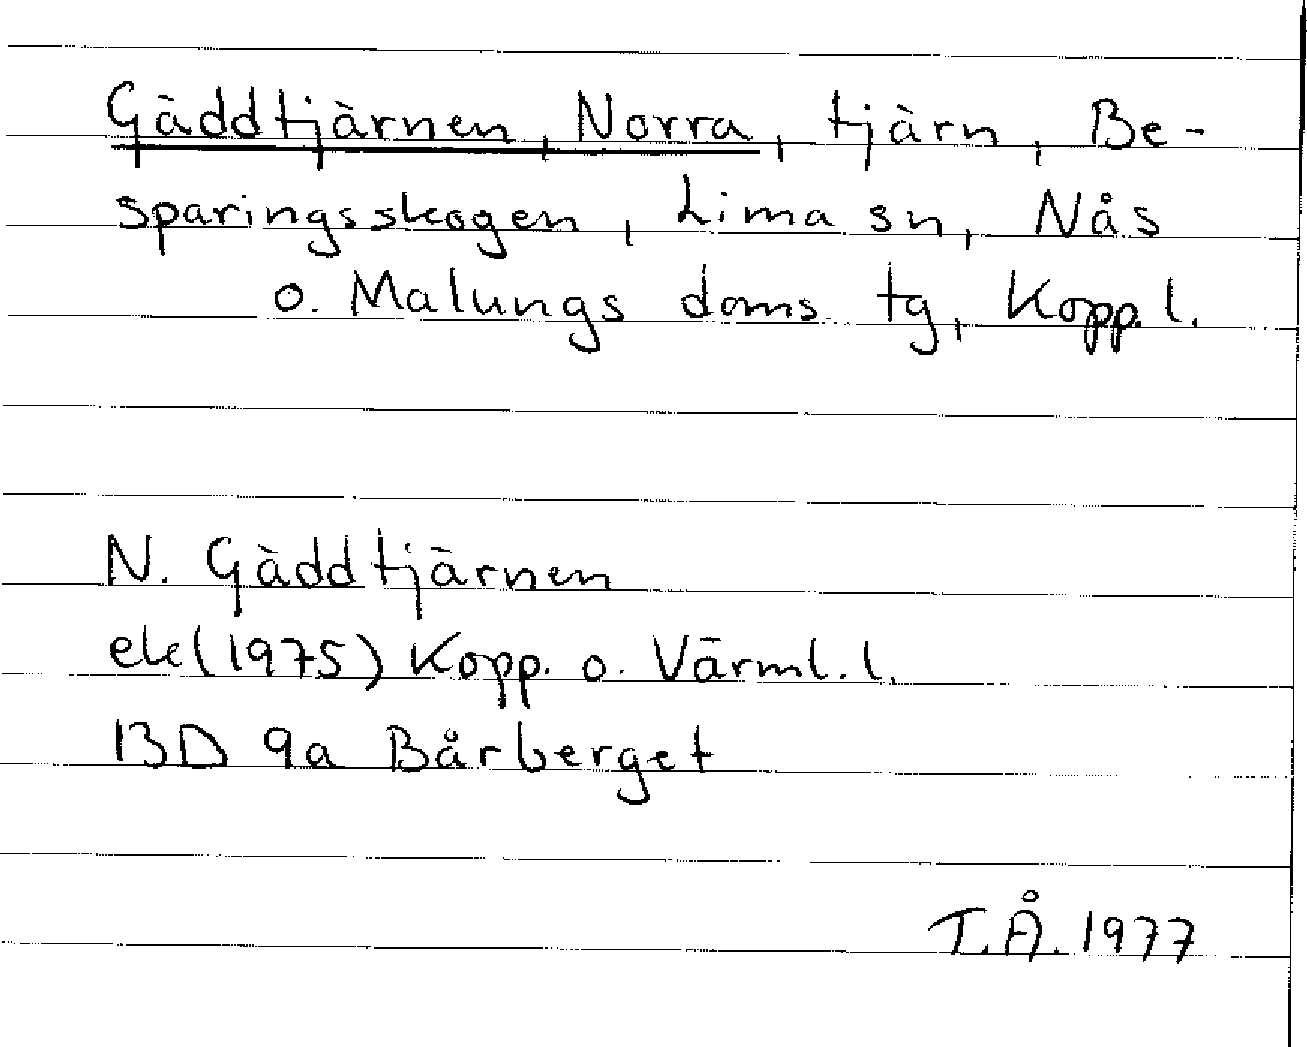 Gäddtjärnen, Norra, tjärn, Be-
sparingsskogen, Lima sn, Nås
o. Malungs doms tg, Kopp. l.
N. Gäddtjärnen
ek (1975) Kopp. o. Värml. l.
13D 9a Bårberget
T.Å. 1977